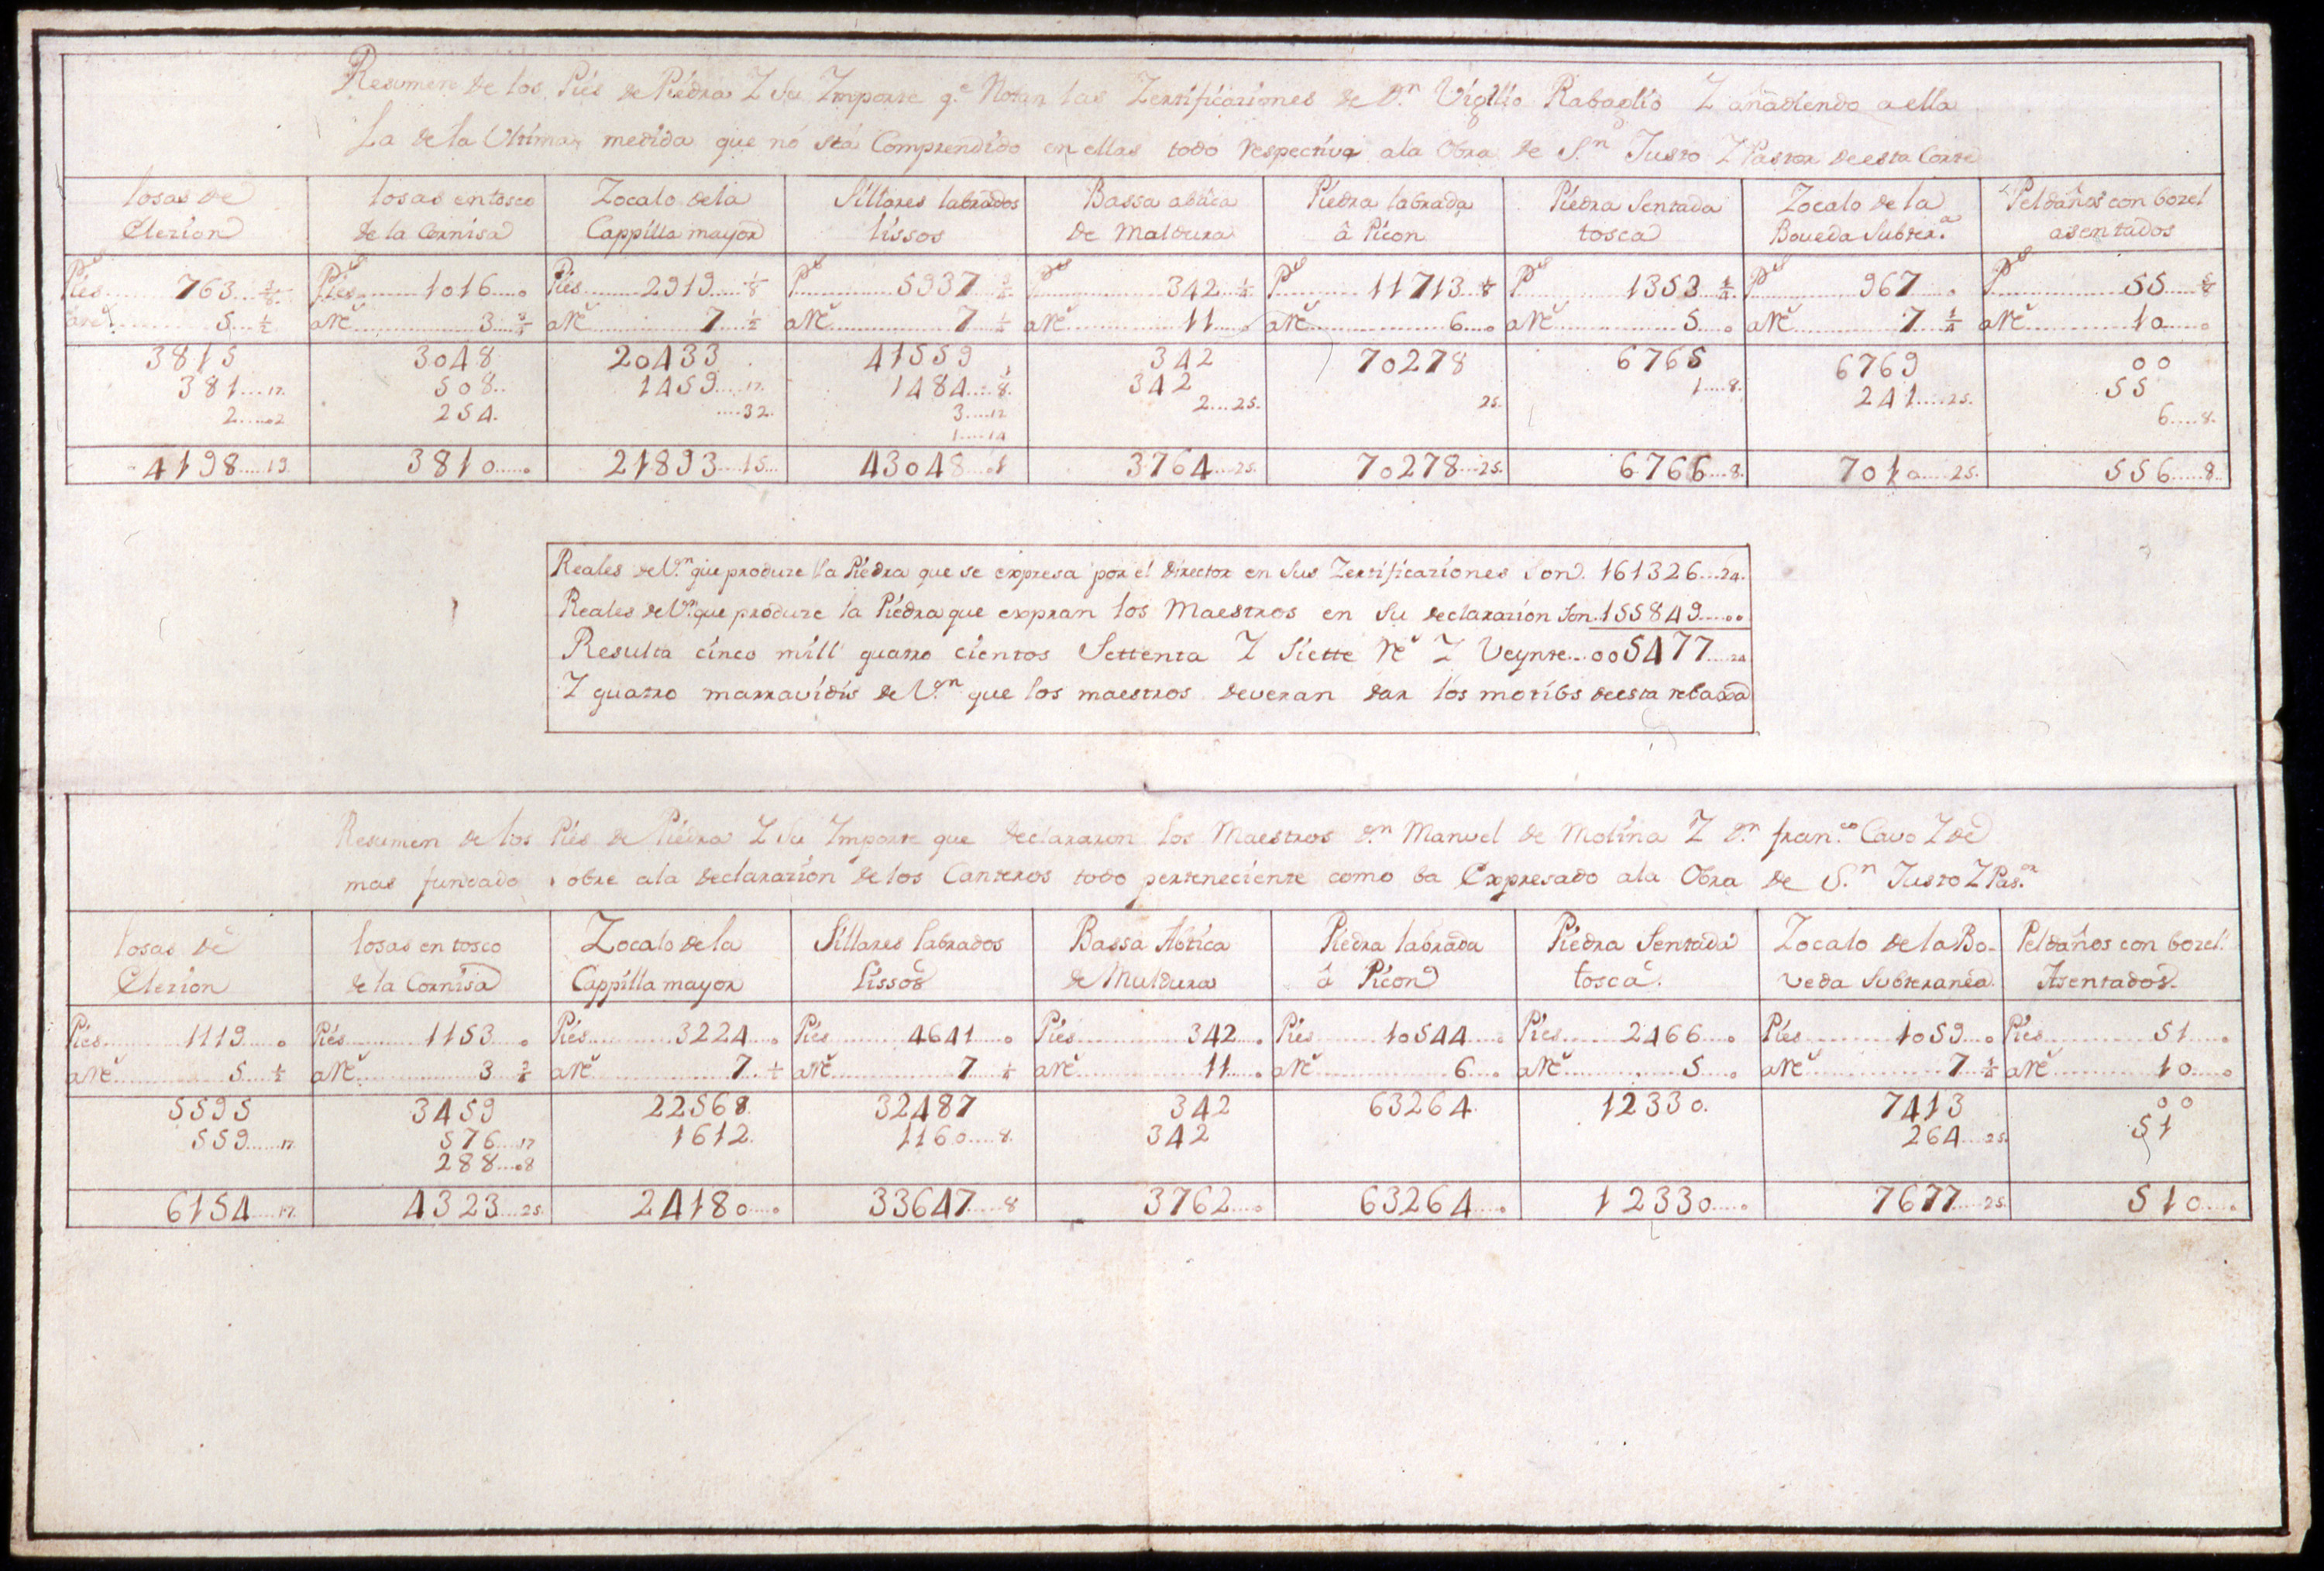 Resumen de los Pies de Piedra Z su Zmporte q.e Notan las Zertificaziones de D.n Vigilio Rabaglio Z añadiendo a ella
La de la Ultima medida que nó stá Comprendido en ellas todo respectivo ala Obra de S.n Justo Z Pastor de esta Corte
losas de Elezion | losas en tosco de la Cornisa | Zocalo dela Cappilla mayor | Sillares labrados lissos | Bassa abtica de Maldura | Piedra labrada â Picon | Piedra Sentada tosca | Zocalo de la Boueda Subter.a | Peldaños con bozel asentados
Pies 763 | Pies 1016 0 | Pies 2919 1/8 | P 5937 3/4 | P 342 1/4 | P 11713 1/8 | P 1353 1/4 | P 967 0 | P 55 5/8
aRe 5 1/2 | aRe 3 3/4 | aRe 7 1/2 | aRe 7 1/4 | aRe 11 0 | aRe 6 0 | aRe 5 0 | aRe 7 1/4 | aRe 10 0
3815 | 3048 | 20433 | 41559 | 342 | 70278 | 6765 | 6769 | 00
381 17 | 508 | 1459 17 | 1484 8 | 342 | 25 | 1 8 | 241 25 | 55
2 02 | 254 | 32 | 3 12 | 2 25 | 6 8
1 14
4198 19 | 3810 0 | 21893 15 | 43048 01 | 3764 25 | 70278 25 | 6766 8 | 7010 25 | 556 8
Reales de V.n que produze la Piedra que se expresa por el Director en sus Zertificaziones Son 161326 24
Reales de V.n que produze la Piedra que expran los Maestros en su declarazion son 155849 00
Resulta cinco mill quatro cientos Settenta Z Siette Re Z Veynte 005477 24
Z quatro marravidis de V.n que los maestros deveran dar los motibs de esta rebaxa
Resumen de los Pies de Piedra Z su Zmporte que declararon los Maestros D.n Manuel de Molina Z D.n fran.co Cavo Z de
mas fundado sobre ala declarazion de los Canteros todo perteneciente como ba Expresado ala Obra de S.n Justo Z Pas.or
losas de Elezion | losas en tosco de la Cornisa | Zocalo de la Cappilla mayor | Sillares labrados Lissos | Bassa Abtica de Muldura | Piedra labrada â Picon | Piedra Sentada tosca. | Zocalo de la Bo-veda Subteranea. | Peldaños con bozel. Asentados.
Pies 1119 0 | Pies 1153 0 | Pies 3224 0 | Pies 4641 0 | Pies 342 0 | Pies 10544 0 | Pies 2466 0 | Pies 1059 0 | Pies 51 0
aRe 5 1/2 | aRe 3 3/4 | aRe 7 1/2 | aRe 7 1/4 | aRe 11 0 | aRe 6 0 | aRe 5 0 | aRe 7 1/4 | aRe 10 0
5595 | 3459 | 22568 | 32487 | 342 | 63264 | 12330 | 7413 | 00
559 17 | 576 17 | 1612 | 1160 8 | 342 | 264 25 | 51
288 08
6154 17 | 4323 25 | 24180 0 | 33647 8 | 3762 0 | 63264 0 | 12330 0 | 7677 25 | 510 0